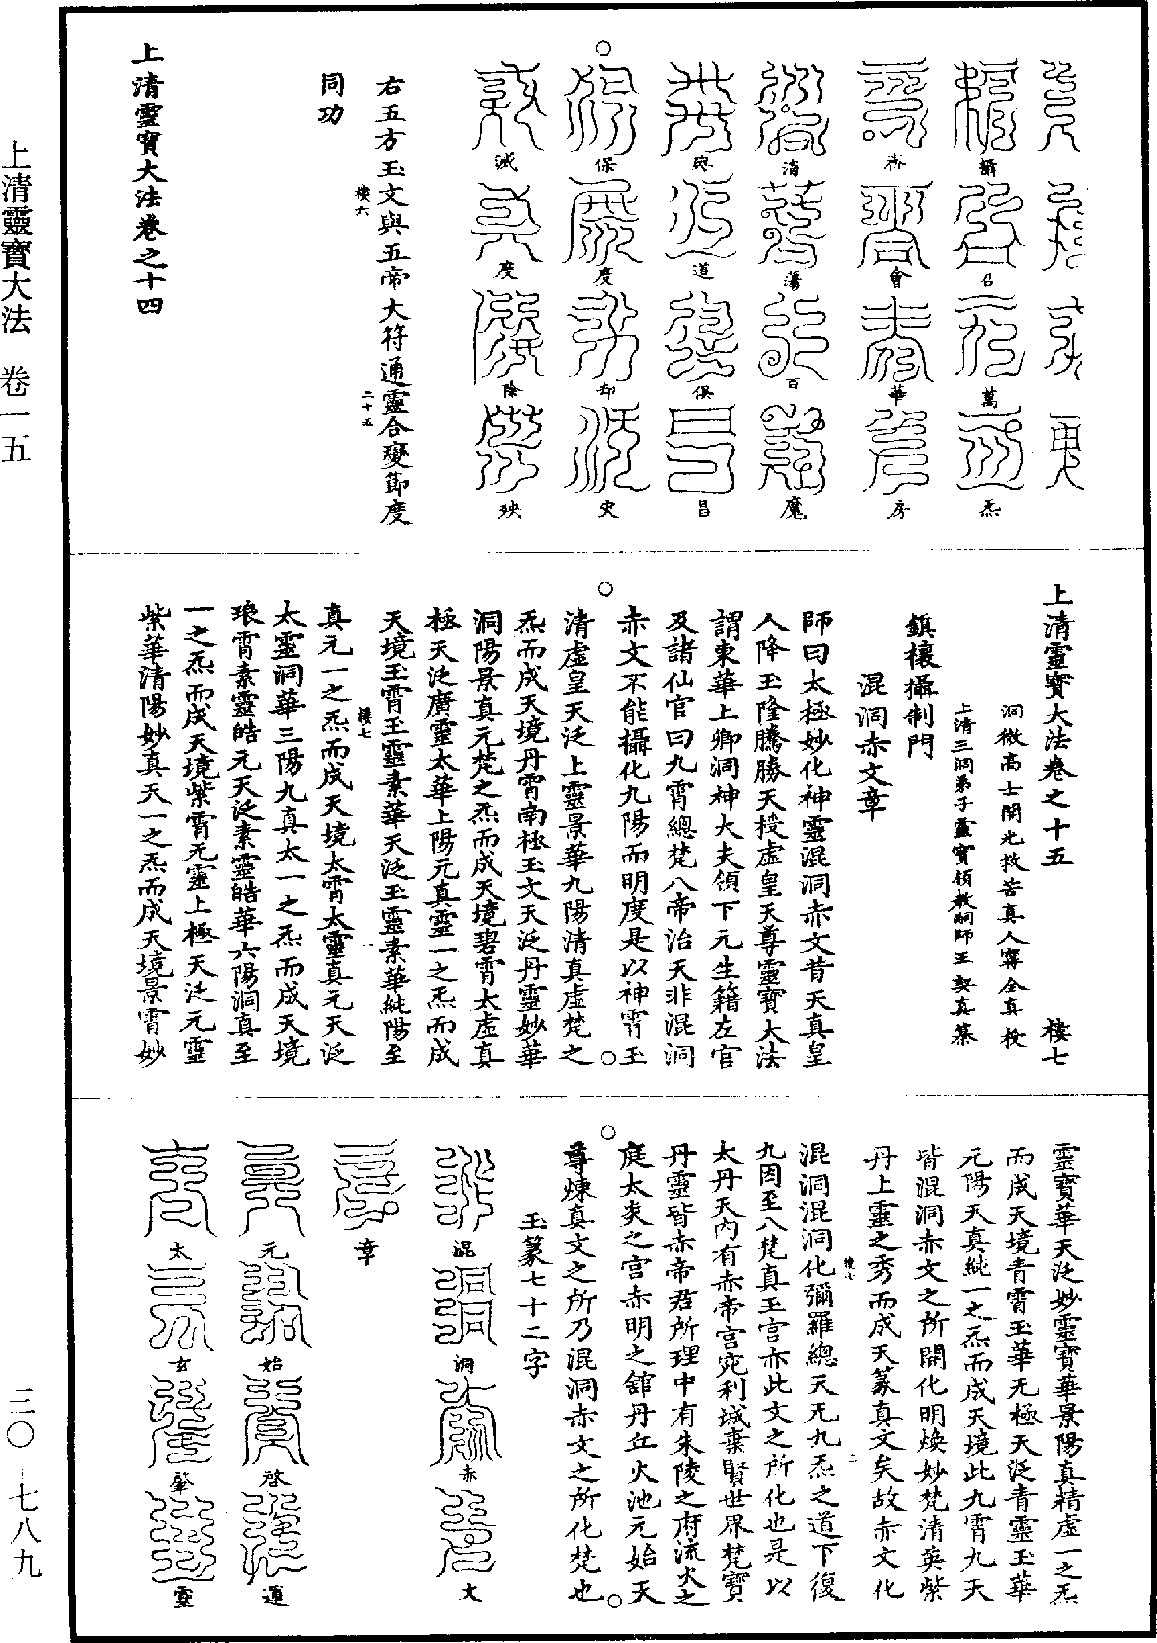 上清靈寶大法 卷一五
三〇—七八九
攝召萬炁
齋會華房
清蕩百魔
道俱昌
保度劫史
誡度除殃
右五方玉文與五帝大符通靈合變節度
同功
樓六
二十五
上清靈寶大法卷之十四
上清靈寶大法卷之十五 樓七
洞微高士開光救苦真人甯全真授
上清三洞弟子靈寶領教嗣師王契真纂
鎮禳攝制門
混洞赤文章
師曰太極妙化神靈混洞赤文昔天真皇
人降玉隆騰勝天授虛皇天尊靈寶大法
謂東華上卿洞神大夫領下元生籍左官
及諸仙官曰九霄總梵八帝治天非混洞
赤文不能攝化九陽而明度是以神霄玉
清虛皇天泛上靈景華九陽清真虛梵之
炁而成天境丹霄南極玉文天泛丹靈妙華
洞陽景真元梵之炁而成天境碧霄太虛真
極天泛廣靈太華上陽元真靈一之炁而成
天境玉霄玉靈素華天泛玉靈素華純陽至
真元一之炁而成天境太霄太靈真元天泛
樓七
太靈洞華三陽九真太一之炁而成天境
琅霄素靈皓元天泛素靈皓華六陽洞真至
一之炁而成天境紫霄元靈上極天泛元靈
紫華清陽妙真天一之炁而成天境景霄妙
靈寶華天泛妙靈寶華景陽真精虛一之炁
而成天境青霄玉華无極天泛青靈玉華
元陽天真純一之炁而成天境此九霄九天
皆混洞赤文之所開化明煥妙梵清英紫
丹上靈之秀而成天篆真文矣故赤文化
混洞混洞化彌羅總天无九炁之道下復
樓七
二
九因至八梵真王宮亦此文之所化也是以
太丹天內有赤帝宮宛利城棄賢世界梵寶
丹靈皆赤帝君所理中有朱陵之府流火之
庭太炎之宮赤明之舘丹丘火池元始天
尊煉真文之所乃混洞赤文之所化梵也
玉篆七十二字
混洞赤文
章
元始啓運
太玄肇靈